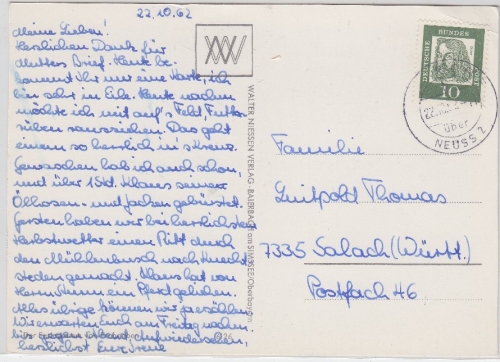 22.10.62
Meine Lieben!
Herzlichen Dank für
Muttis Brief. Heute be-
kommt Ihr nur eine Karte, ich
bin sehr in Eile. Heute nachm.
möchte ich mit auf's Feld, Futter-
rüben rausziehen. Das geht
einem so herrlich in's Kreuz.
Gewaschen hab ich auch schon,
und über 1 Std. Klaus seine
Ölhosen- und Jacken gebürstet.
Gestern haben wir bei herrlichstem
Herbstwetter einen Ritt durch
den Mühlenbusch nach
gemacht. Klaus hat von
Herrn ein Pferd geliehen.
Alles übrige können wir ja erzählen.
Wir erwarten Euch am Freitag nachm.
bis gegen Abend. Aufwiedersehen,
herzlichst Eure Irene
WALTER NIESSEN VERLAG BAIERBACH am SIMSSEE/Oberbayern
DEUTSCHE BUNDESPOST
10
22.10.62
über
NEUSS 2
Familie
Luitpold Thomas
7335 Salach (Württ.)
Postfach 46